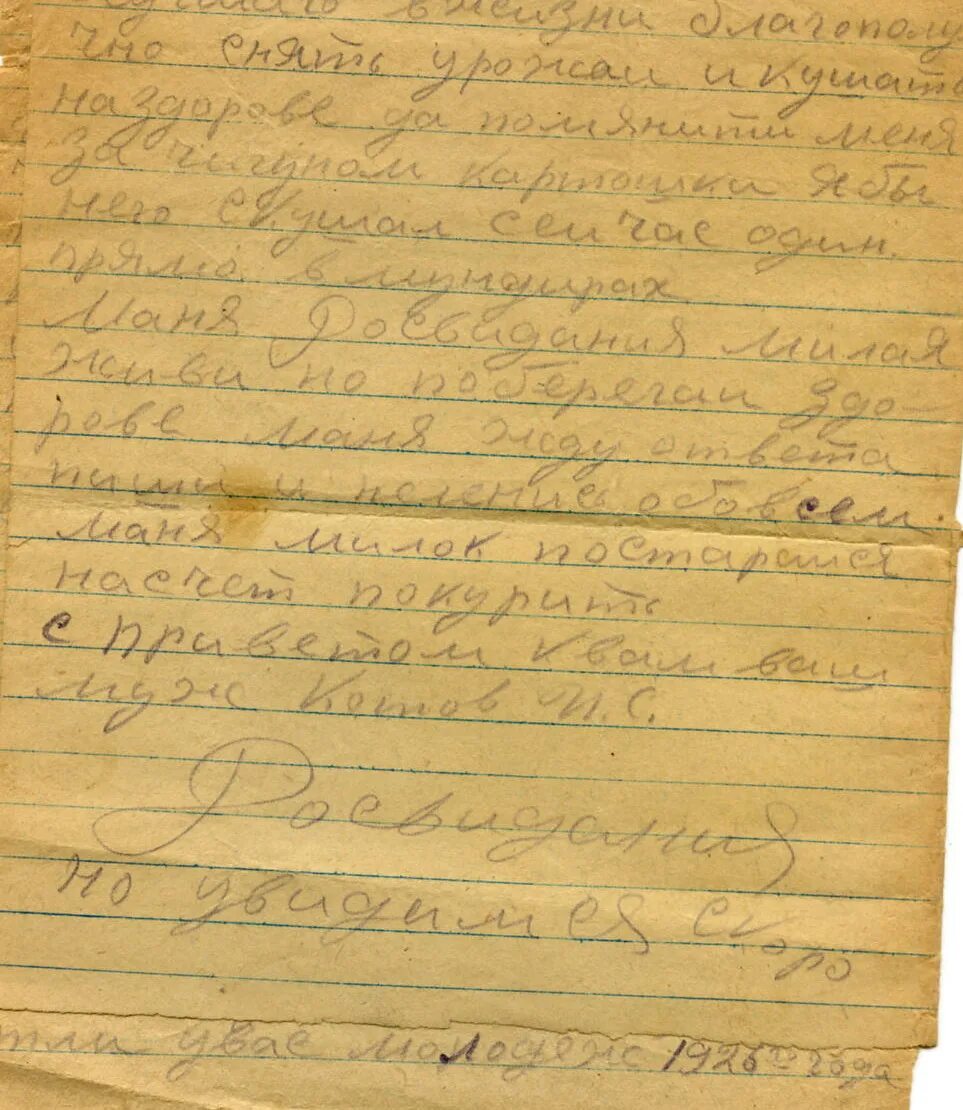 в жизни благополу
чно снять урожаи и кушать
на здорове да помянити меня
за чигуном картошки я бы
него скушал сеичас один.
прямо в мундирах
Маня Досвидания милая
живи но поберегаи здо-
рове маня жду ответа
пиши и неленись обовсем.
маня милок постараися
насчет покурить
с приветом квам ваш
муж Котов И.С.
Досвидания
но увидимся скоро
ли увас молодеж 1926 го года